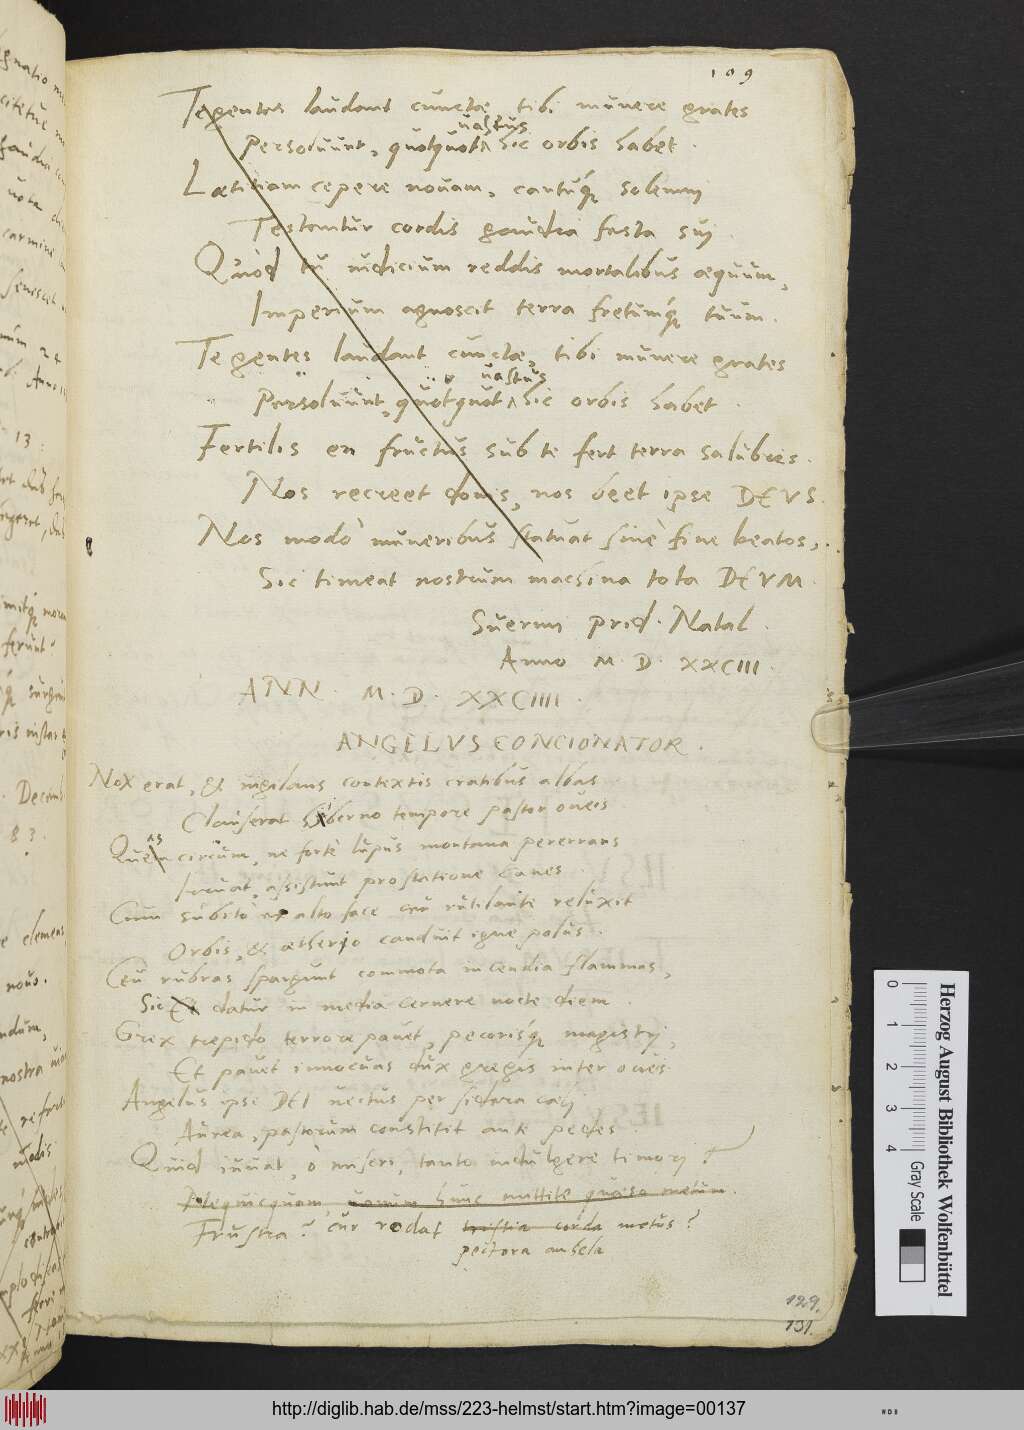 109
Te gentes laudant cunctae, tibi munere grates
uastus
Persoluunt, quotquot hic orbis habet.
Laetitiam cepere nouam, cantuq́ue solemni
Testantur cordis gaudia festa sui.
Quòd tu iudicium reddis mortalibus aequum,
Imperium agnoscit terra fretumq́ue tuum.
Te gentes laudant cunctae, tibi munere grates
uastus
Persoluunt, quotquot hic orbis habet.
Fertilis en fructus sub te fert terra salubres.
Nos recreet donis, nos beet ipse DEVS.
Nos modò muneribus statuat sine fine beatos,
Sic timeat nostrum machina tota DEVM.
Suerini prid. Natal.
Anno M. D. XXCIII.
ANN. M. D. XXCIIII.
ANGELVS CONCIONATOR.
Nox erat, & uigilans contextis cratibus albas
Clauserat hiberno tempore pastor oueis
Quas circum, ne fortè lupus montana pererrans
Irruat, assistunt pro statione canes.
Cum subitò ex alto face ceu rutilante reluxit
Orbis, & aetherio canduit igne polus.
Ceu rubras spargunt commota incendia flammas,
Sic Et datur in media cernere nocte diem.
Grex trepido terrore pauet, pecorisq́ue magistri,
Et pauet innocuas dux gregis inter oues.
Angelus ipse DEI uectus per sidera caeli
Aurea, pastorum constitit ante pedes.
Quid iuuat, ô miseri, tanto indulgere timori?
Nequicquam, uanum hunc mittite quaeso metum.
Frustra? cur rodat tristia corda metus?
pectora anhela
129.
131.
0 1 2 3 4
Gray Scale
Herzog August Bibliothek Wolfenbüttel
http://diglib.hab.de/mss/223-helmst/start.htm?image=00137